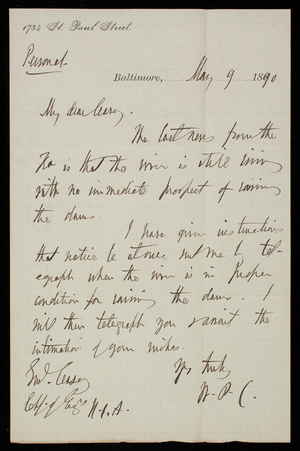 1734 St. Paul Street.
Personal.
Baltimore, May 9 1890
My dear Casey.
The last news from the
is that the river is still rising
with no immediate prospect of raising
the dams.
I have given instructions
that notice be at once sent me by tel-
egraph when the river is in proper
condition for raising the dams. I
will then telegraph you & await the
intimation of your wishes.
Yrs truly
W. P. C.
Genl. Casey
Chf. of Engs U.S.A.